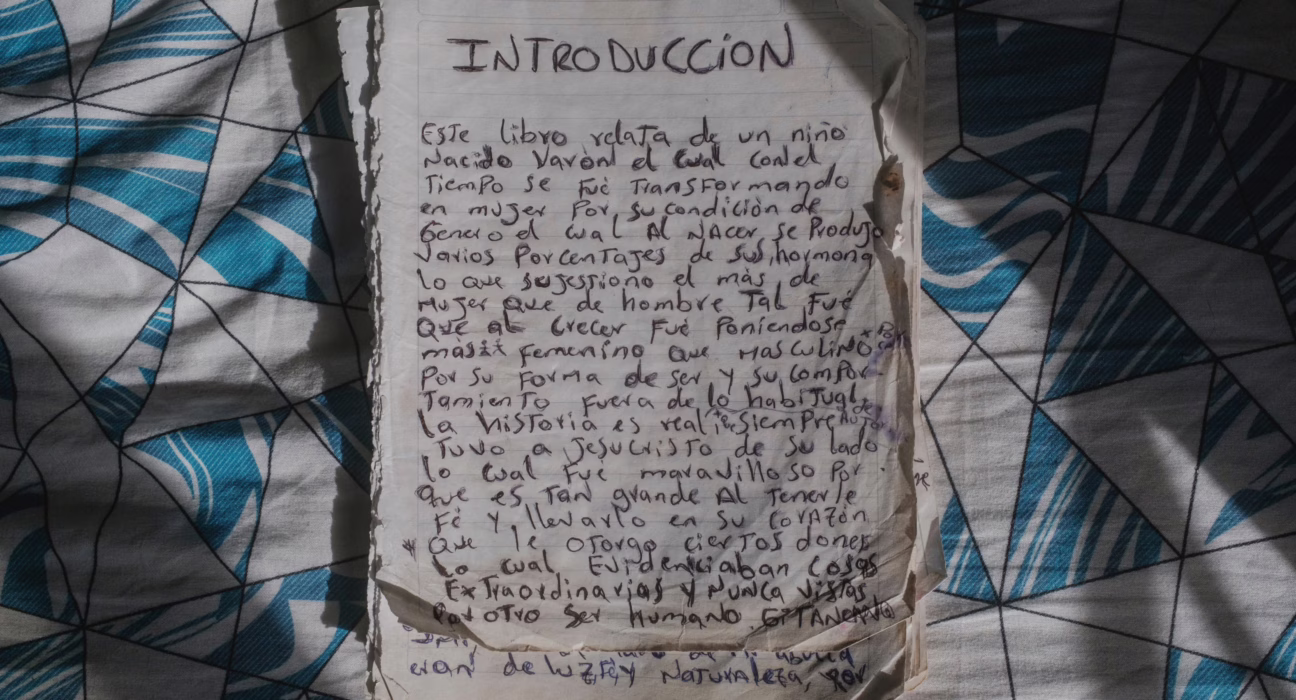 INTRODUCCION
Este libro relata de un niño
Nacido Varòn el Cual Con el
Tiempo se Fuè TransFormando
en mujer Por su condiciòn de
Genero el cual Al NAcer se Produjo
Varios Porcentajes de sus, hormona
lo que sugestiono el màs de
mujer que de hombre Tal Fuè
Que al Crecer Fuè Poniendose
màs Femenino que MasCulino
Por su Forma de ser y su Compor
Tamiento Fuera de lo habiTual,
la hisToria es real siempre
Tuvo a jesuCrisTo de su lado
lo cual Fuè maravilloso Por
que es Tan grande Al Tenerle
Fè y llevarlo en su CorAzòn
Que le oTorgo cierTos dones
Lo cual Evidenciaban Cosas
ExTraordinarias y Nunca Vistas
Por oTro Ser Humano.
eran de luz, y NaTuraleza, Por